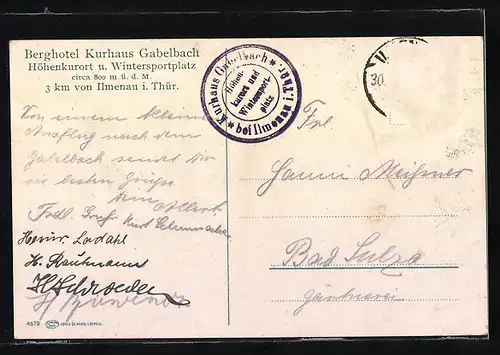 Berghotel Kurhaus Gabelbach
Höhenkurort u. Wintersportplatz
circa 800 m ü. d. M.
3 km von Ilmenau i. Thür.
Kurhaus Gabelbach
bei Ilmenau i. Thür.
Höhen-
kurort und
Wintersport-
platz
30.
Von einem kleinen
Ausflug nach dem
Gabelbach sendet Dir
die besten Grüße
Dein Albert
Frdl. Gruß Kurt
Heinr. Ladahl
H. Kaufmann
H Schroeder
Frl.
Hanni Meißner
Bad Sulza
Gärtnerei
4679
LOUIS GLASER, LEIPZIG